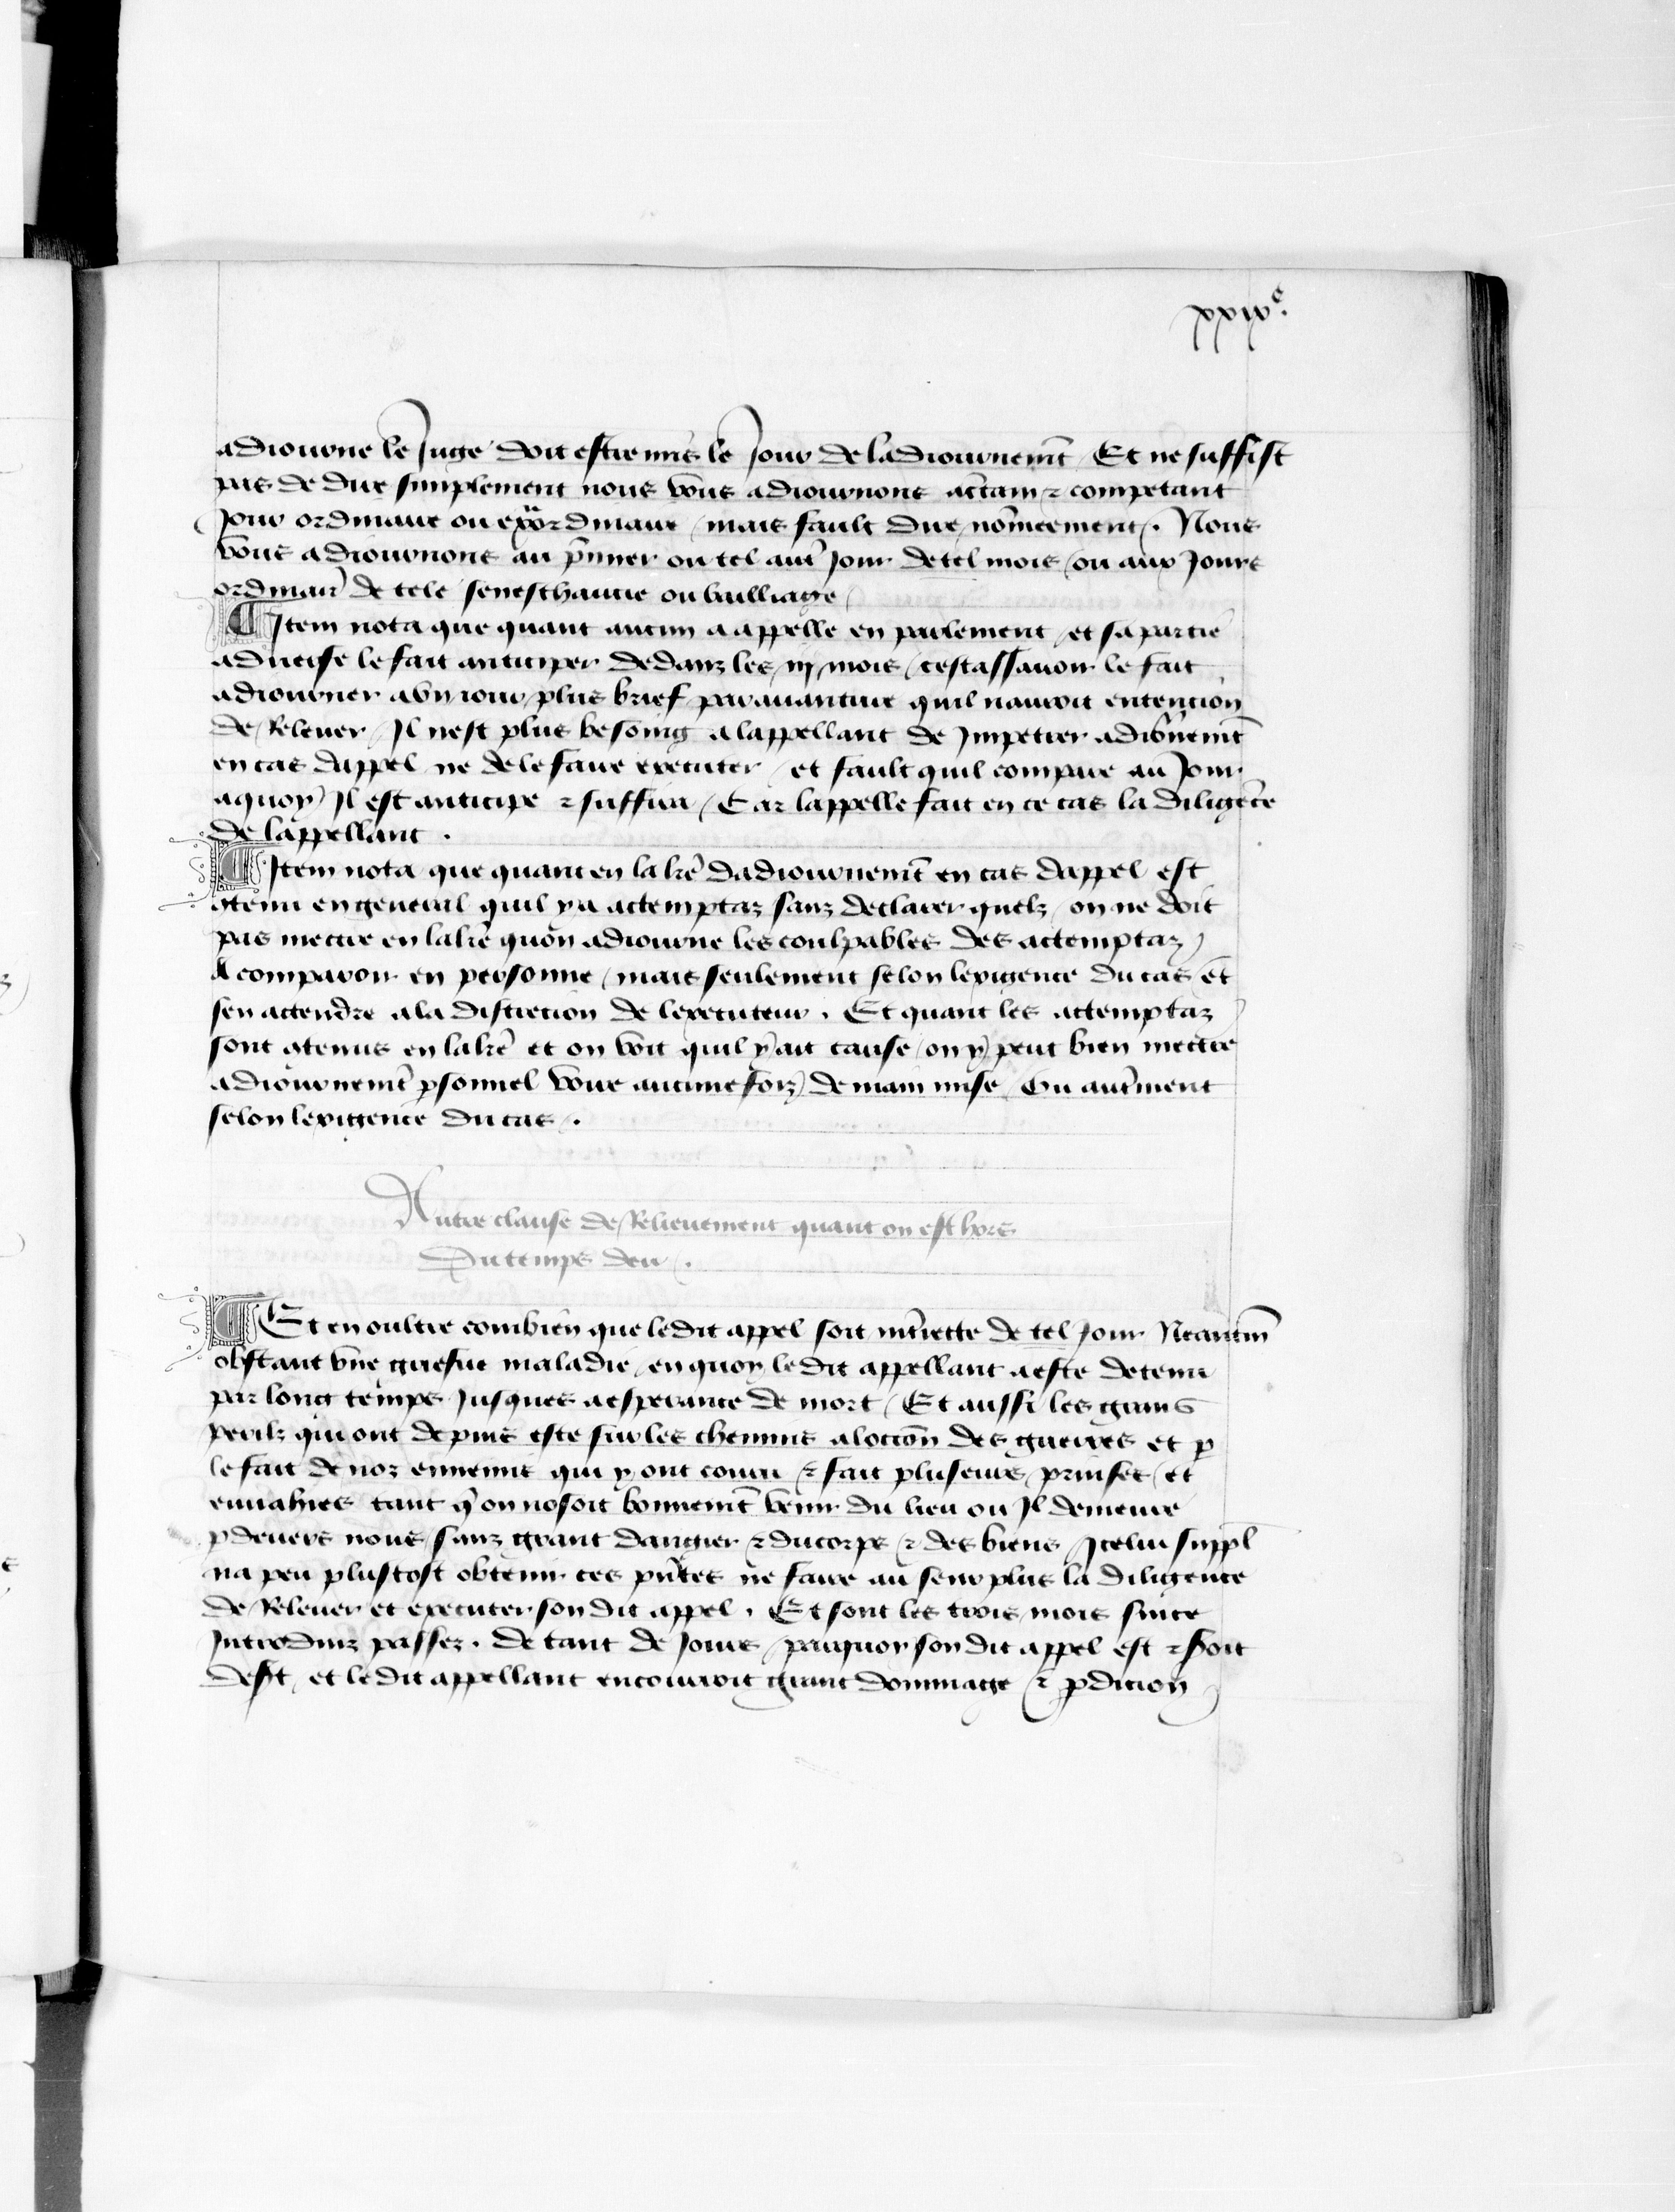 xxixe.
adiourne le Juge doit estre mis le Jour de ladiournemt Et ne suffist
pas de dire simplement nous vous adiournons a ctain ⁊ competant
Jour ordinaire ou exᵃordinaire / mais fault dire nomeement /. Nous
vous adiournons au p̄mier ou tel autr̄ Jour de tel mois / ou aux Jours
ordinair̄ de tele seneschaucie ou bailliage /
¶ Item nota que quant aucun a appelle en parlement / et sa partie
aduerse le fait anticiper dedanz les iij mois / cestassauoir le fait
adiourner a vn iour plus brief / parauanture quil nauoit entencion
de Releuer / Il nest plus besoing a lappellant de Impetrer adiournemt̄
en cas dappel ne de le faire executer / et fault quil compaire au Jour
a quoy Il est anticipe ⁊ suffira / Car lappelle fait en ce cas la diligēce
de lappellant .
¶ Item nota que quant en la lrē dadiournemt̄ en cas dappel est
9tenu en general quil y a actemptaz sanz declarer quelz / on ne doit
pas mectre en la lrē quon adiourne les coulpables des actemptaz
A comparoir en personne / mais seulement selon lexigence du cas / et
sen actendre a la discrecion de lexecuteur . Et quant les actemptaz
sont 9tenus en la lrē et on voit quil y ait cause / on y peut bien mectre
adiournemt̄ p̱sonnel voire aucunefoiz de main mise / Ou autr̄ment
selon lexigence du cas .
Autre clause de Relieuement quant on est hors
Du temps deu /.
¶ Et en oultre combien que ledit appel soit int̄iecte de tel Jour Neantm̄
obstant vne griefue maladie / en quoy ledit appellant a este detenu
par long temps Jusques a esperance de mort / Et aussi les grans
perilz qui ont depuis este sur les chemins a locc̄on des guerres et p̱
le fait de noz ennemis qui y ont couru ⁊ fait pluseurs prinses / et
enuahies tant q̄ on nosoit bonnemt̄ venir du lieu ou Il demeure
p̱deuers nous / sanz grant dangier ⁊ du corps ⁊ des biens / Icelui suppl̄
na peu plustost obtenir ces pn̄tes ne faire au seurplus la diligence
de Releuer et executer son dit appel . Et sont les trois mois sur ce
Introduiz passez . de tant de Jours / parquoy son dit appel est ⁊ soit
desert / et ledit appellant encourroit grant dommage ⁊ p̱dicion